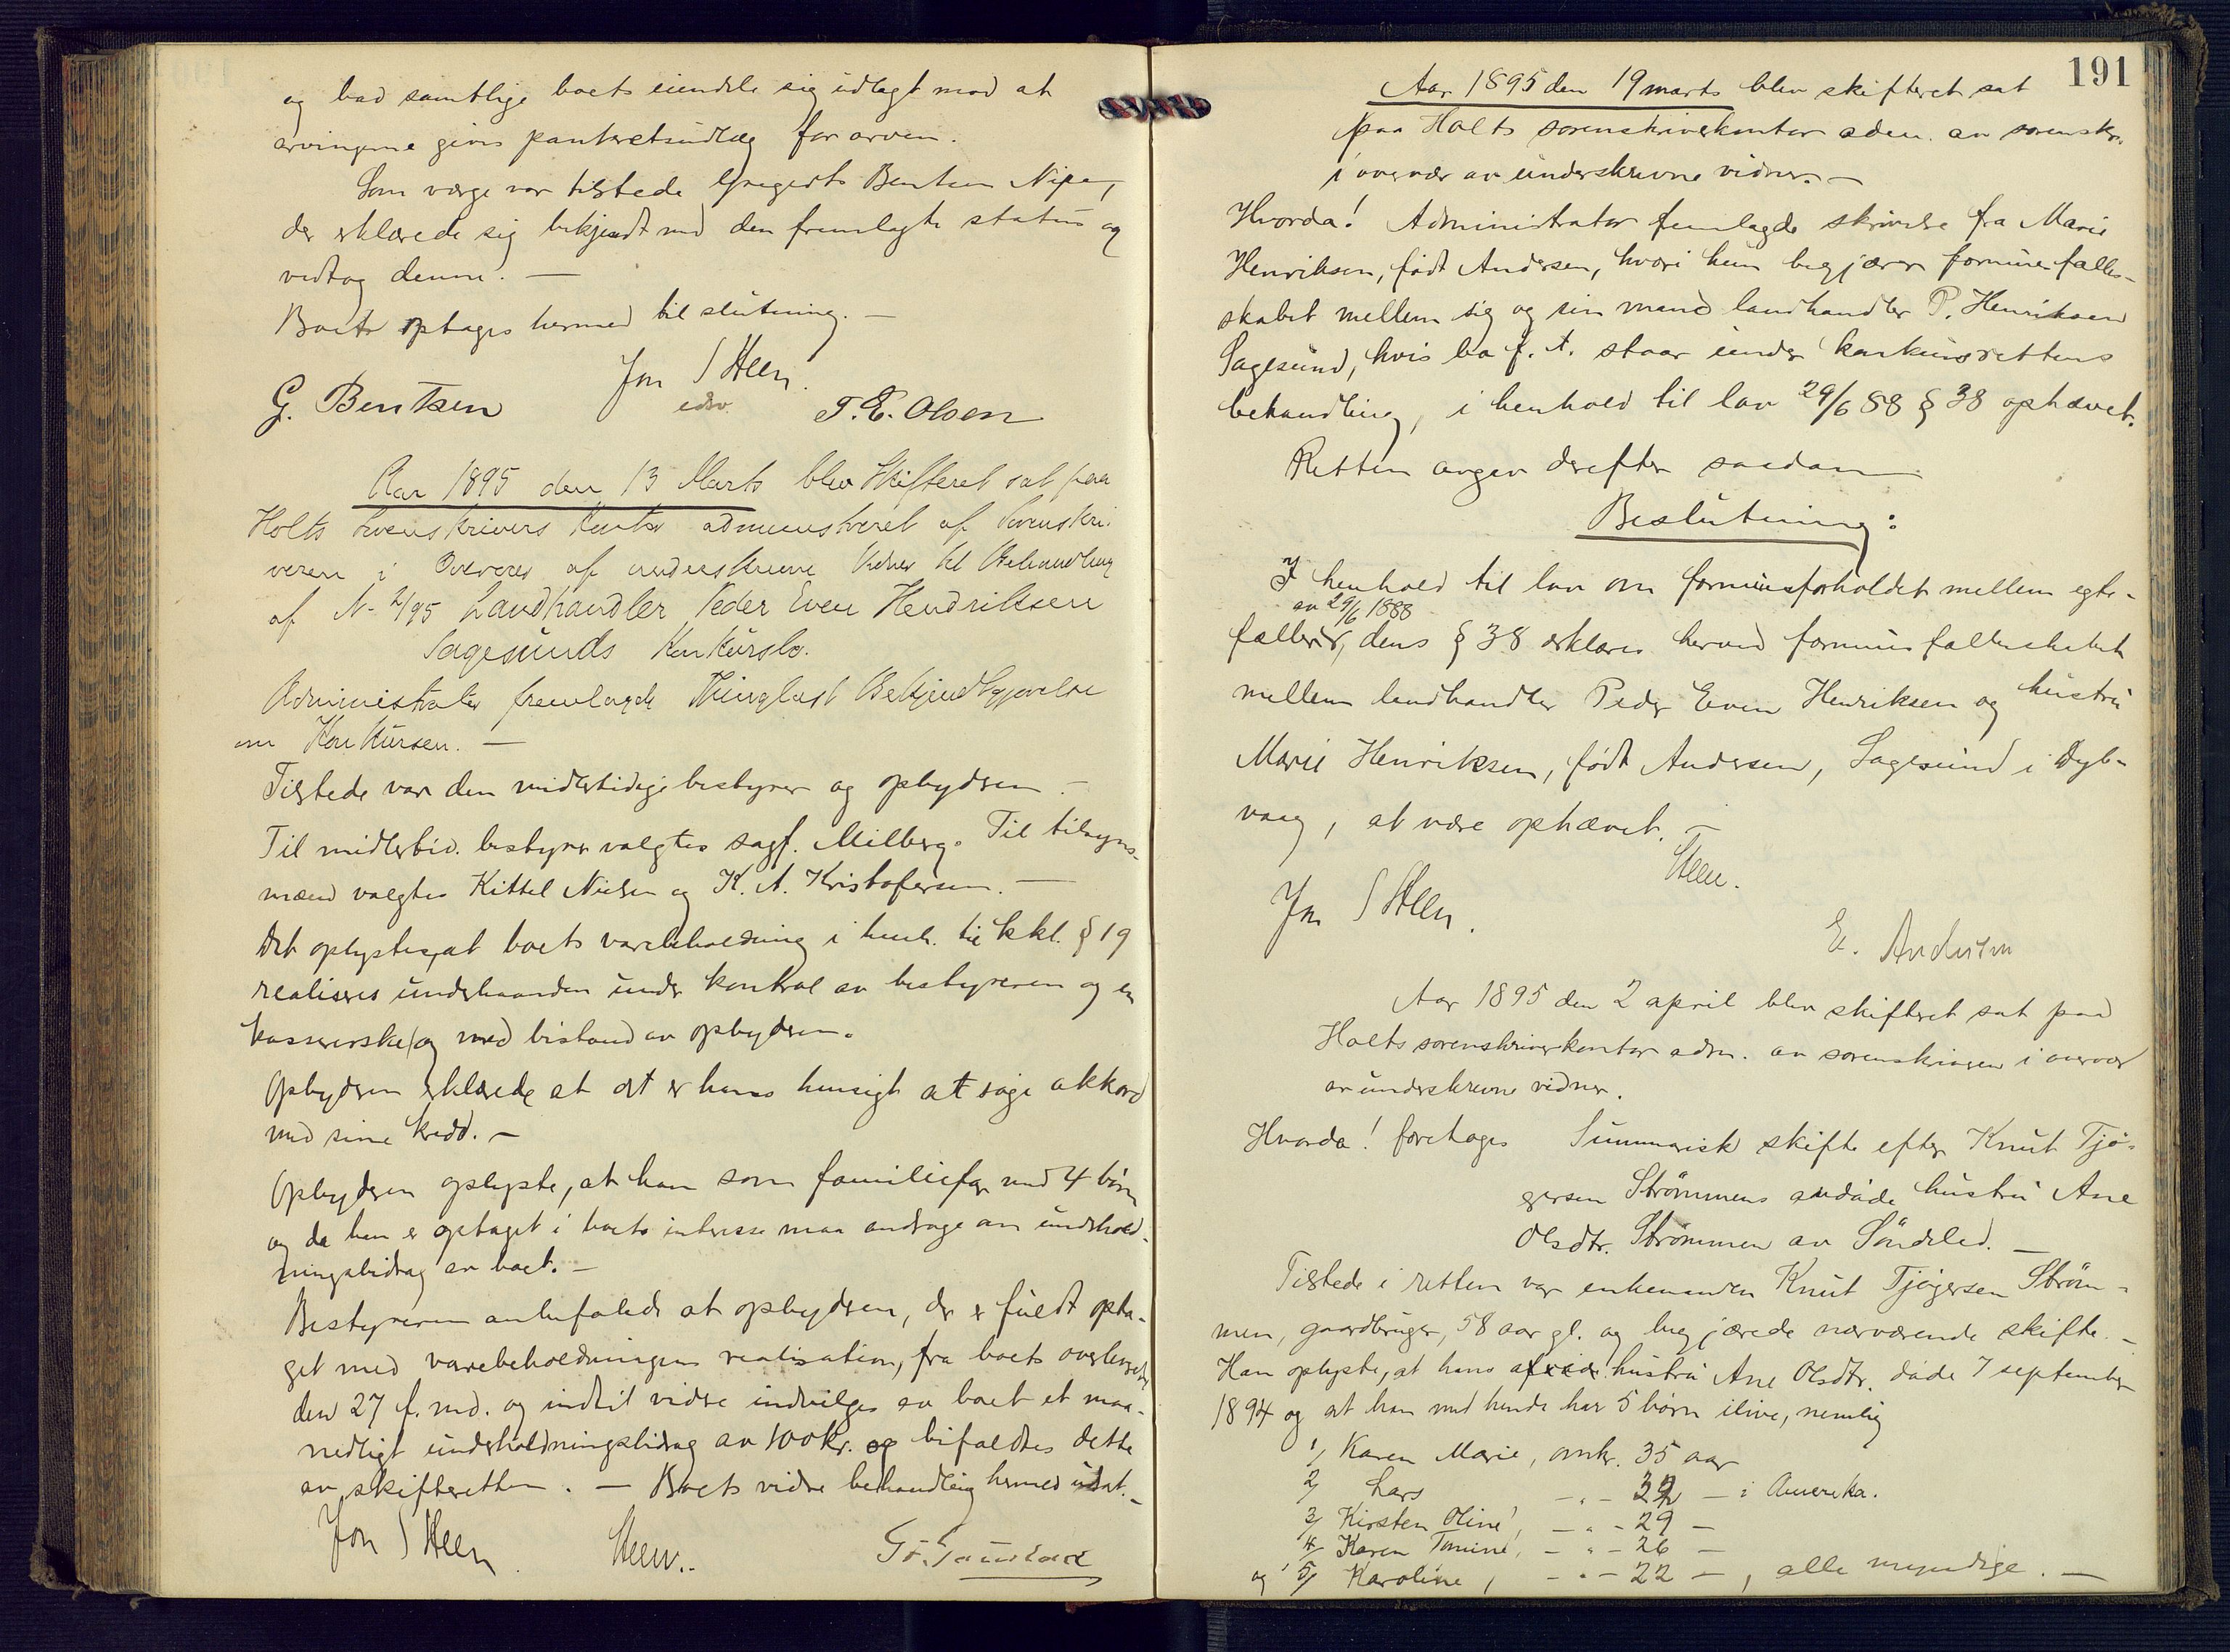 og bad samtlige boets eiendele sig udlagt mod at
arvingerne gives panteretsudlæg for arven.
Som værge var tilstede Gregerts Bentsen Nipe,
der erklærede sig bekjendt med den fremlagte status og
vedtog denne. —
Boets optages hermed til slutning. —
Jon S Steen
edsv.
G. Bentsen
T. E. Olsen
Aar 1895 den 13 Marts blev Skifteret sat paa
Holts Sorenskrivers Kontor administreret af Sorenskri-
veren i Overvær af underskrevne Vidner til Behandling
af N- 2/95 Landhandler Peder Even Hendriksen
Sagesunds Konkursbo.
Administrator fremlagde Thinglæst Bekjendtgjørelse
om Konkursen. —
Tilstede var den midlertidige bestyrer og opbyderen. —
Til midlertid. bestyrer valgtes sagf. Milberg. Til tilsyns-
mænd valgtes Kittel Nielsen og K. A. Kristofersen. —
Det oplystes, at boets varebeholdning i henh. til kkl. § 19
realiseres underhaanden under kontrol av bestyreren og en
kassererske og med bistand av opbyderen.
Opbyderen erklærede at det er hans hensigt at søge akkord
med sine kredd. —
Opbyderen oplyste, at han som familiefar med 4 børn
og da han er optaget i boets interesse maa andrage om underhold-
ningsbidrag av boet. —
Bestyreren anbefalede at opbyderen, der er fuldt opta-
get med varebeholdningens realisation, fra boets overleverelse
den 27 f. md. og indtil videre indvilges av boet et maa-
nedligt underholdningsbidrag av 100 kr. og bifaldtes dette
av skifteretten. — Boets videre behandling hermed udsat. —
Jon S Steen
Steen.
191
Aar 1895 den 19 marts blev skifteret sat
paa Holts sorenskriverkontor adm. av sorenskr.
i overvær av underskrevne vidner. —
Hvorda! Administrator fremlagde skrivelse fra Marie
Henriksen, født Andersen, hvori hun begjærer formuesfælles-
skabet mellem sig og sin mand landhandler P. Henriksen
Sagesund, hvis bo f. t. staar under konkursrettens
behandling, i henhold til lov 29/6 88 § 38 ophævet.
Retten avgav derefter saadan
Beslutning:
I henhold til lov om formuesforholdet mellem egte-
av 29/6 1888
fæller, dens § 38 erklæres herved formuesfællesskabet
mellem landhandler Peder Even Henriksen og hustru
Marie Henriksen, født Andersen, Sagesund i Dyb-
vaag, at være ophævet. —
Steen.
Jon S Steen.
E. Andersen
Aar 1895 den 2 april blev skifteret sat paa
Holts sorenskriverkontor adm. av sorenskriveren i overvær
av underskrevne vidner.
Hvorda! foretoges Summarisk skifte efter Knut Tjø-
gersen Strømmens avdøde hustru Ane
Olsdtr. Strømmen av Søndeled. —
Tilstede i retten var enkemanden Knut Tjøgersen Strøm-
men, gaardbruger, 58 aar gl. og begjærede nærværende skifte. —
Han oplyste, at hans hustru Ane Olsdtr. døde 7 september
1894 og at han med hende har 5 børn ilive, nemlig
1/ Karen Marie, omkr. 35 aar
2/ Lars - " - 32 — i Amerika.
3/ Kirsten Oline, - " - 29 —
4/ Karen Tomine, - " - 26 —
og 5/ Karoline, - " - 22 —, alle myndige. —